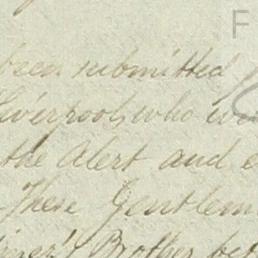 F
been submitted
Liverpool, who
the Alert and
These Gentlem
Brother